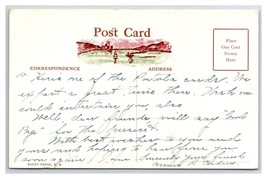 Post Card
Place
One Cent
Stamp
Here
CORRESPONDENCE
ADDRESS
Here's one of the Portola cards. We
expect a great time there. Wish we
could entertain you also.
Well, dear friends will say "Good
Bye" for the present.
With best wishes to you and
yours and hoping to hear from you
soon again. Sincerely your friend